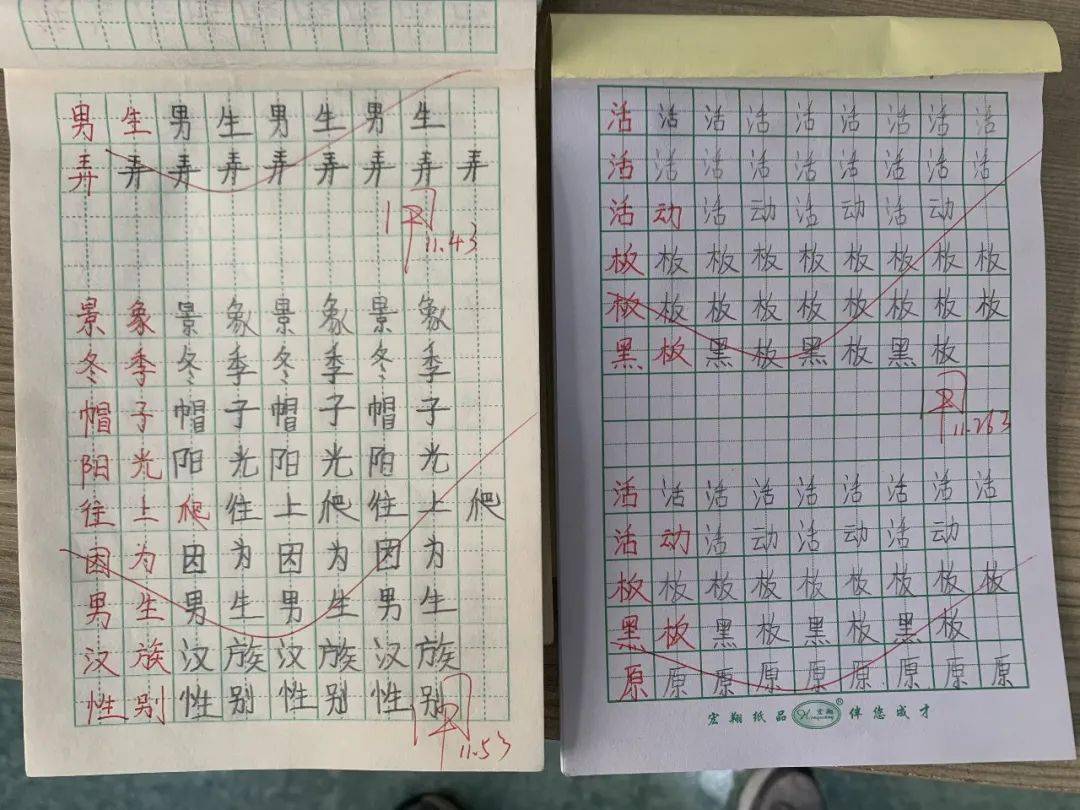 男生男生男生男生
弄弄弄弄弄弄弄弄弄
阅
11.43
景象景象景象景象
冬季冬季冬季冬季
帽子帽子帽子帽子
阳光阳光阳光阳光
往上爬往上爬往上爬
因为因为因为因为
男生男生男生男生
汉族汉族汉族汉族
性别性别性别性别
阅
11.53
活活活活活活活活活
活活活活活活活活活
活动活动活动活动
板板板板板板板板板
板板板板板板板板板
黑板黑板黑板黑板
阅
11.263
活活活活活活活活活
活动活动活动活动
板板板板板板板板板
黑板黑板黑板黑板
原原原原原原原原原
宏翔纸品 宏翔 Hongxiang ® 伴您成才